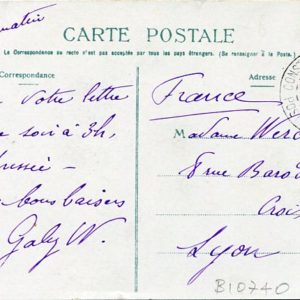 matin
CARTE POSTALE
La Correspondance au recto n'est pas acceptée par tous les pays étrangers. (Se renseigner à la Poste.)
Correspondance
Adresse
Votre lettre
soir à 3h,
bons baisers
Galy W.
France
Madame
8 rue
Lyon
B10740